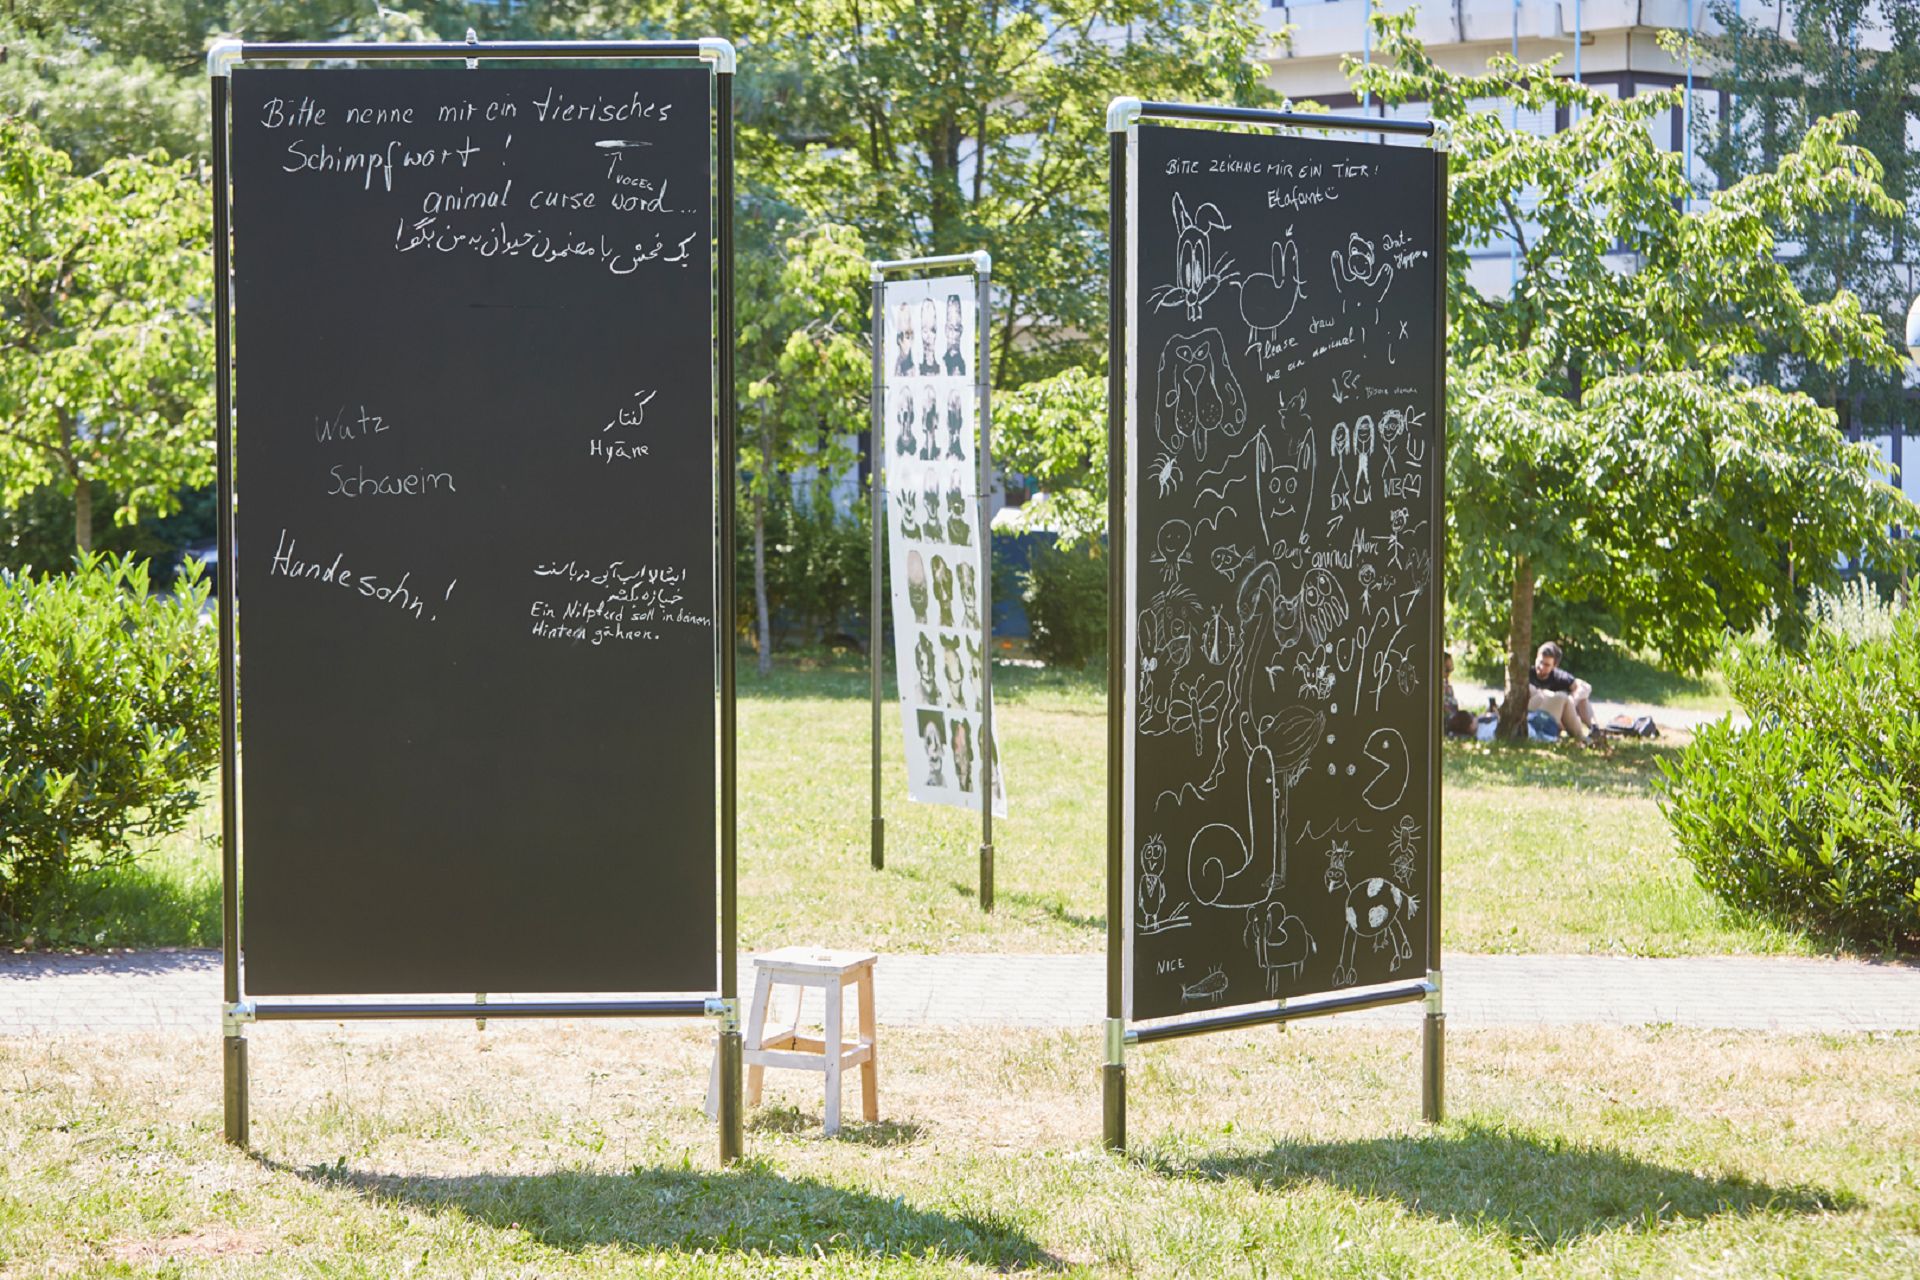 Bitte nenne mir ein tierisches
Schimpfwort !
VOGEL
animal curse word...
یک فحش با مضمون حیوان به من بگو!
Wutz
Schwein
کَفتار
Hyäne
Hundesohn!
ایشالا اسب آبی در باسنت
خمیازه بکشه
Ein Nilpferd soll in deinen
Hintern gähnen.
BITTE ZEICHNE MIR EIN TIER!
Elafant
Please draw
me an animal!
??
BIER
animal
NICE